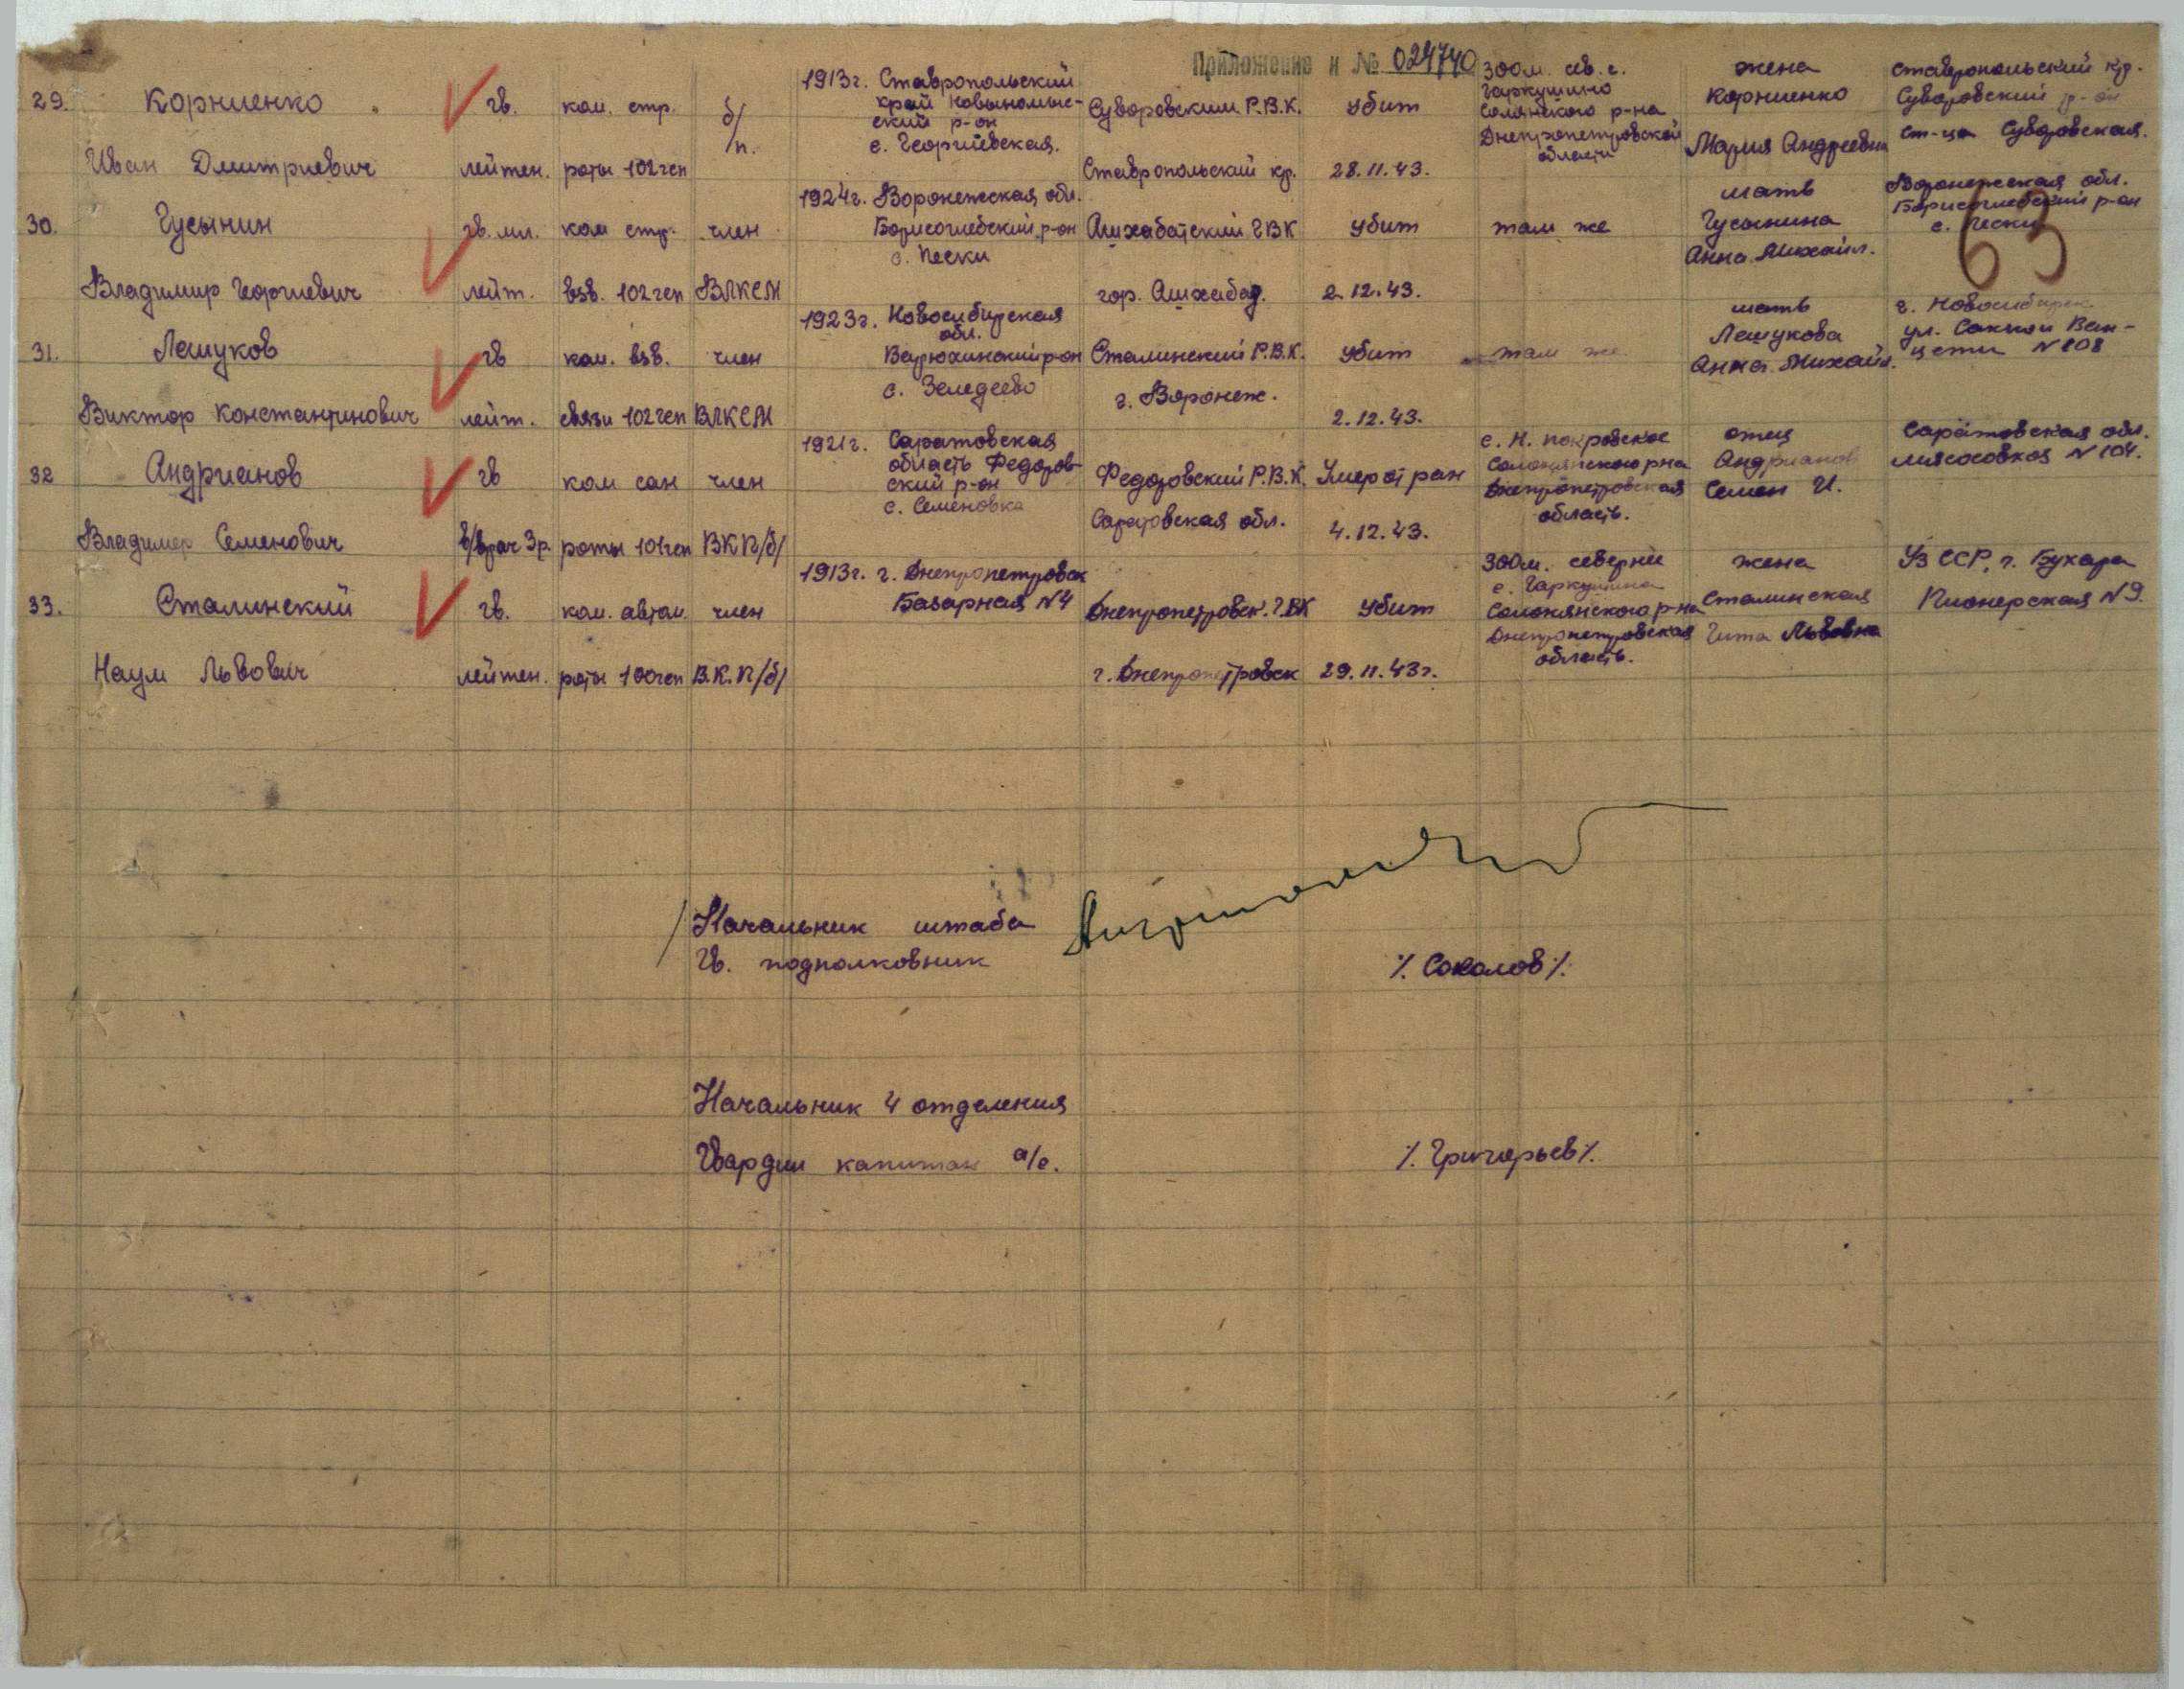 Приложение к № 024740
29. Корниенко
Иван Дмитриевич
гв.
лейтен.
ком. стр.
роты 102 гсп
б/
/п.
1913г. Ставропольский
край Новыномыс-
ский р-он
с. Георгиевская.
Суворовским Р.В.К.
Ставропольский кр.
Убит
28.11.43.
300м. сев. с.
Гаркушино
Солянского р-на
Днепропетровской
области
жена
Корниенко
Мария Андреевна
Ставропольский кр.
Суворовский р-он
ст-ца Суворовская.
30. Гусынин
Владимир Георгиевич
гв. мл.
лейт.
ком стр.
взв. 102 гсп
член
ВЛКСМ
1924г. Воронежская обл.
Борисоглебский р-он
с. Пески
Ашхабатский ГВК
гор. Ашхабад.
Убит
2.12.43.
там же
мать
Гусынина
Анна Михайл.
Воронежская обл.
Борисоглебский р-он
с. Пески
63
31. Лешуков
Виктор Константинович
гв
лейт.
ком. взв.
связи 102 гсп
член
ВЛКСМ
1923г. Новосибирская
обл.
р-он
с. Зеледеево
Сталинский Р.В.К.
г. Воронеж.
Убит
2.12.43.
там же
мать
Лешукова
Анна Михайл.
г. Новосибирск
ул. Сакко и Ван-
цети N 108
32 Андрианов
Владимер Семенович
гв
в/врач 3р.
ком сан
роты 101 гсп
член
ВКП/б/
1921г. Саратовская
область Федоров-
ский р-он
с. Семеновка
Федоровский Р.В.К.
Саратовская обл.
Умер от ран
4.12.43.
с. Н. покровское
Солонянского рна
Днепропетровская
область.
отец
Андрианов
Семен И.
Саратовская обл.
N 104.
33. Сталинский
Наум Львович
гв.
лейтен.
ком. автом.
роты 100 гсп
член
В.К.П/б/
1913г. г. Днепропетровск
Базарная N 4
Днепропетровск. Г.ВК
г. Днепропетровск
Убит
29.11.43г.
300м. севернее
с. Гаркушина
Солонянского р-на
Днепропетровская
область.
жена
Сталинская
Гита Львовна
Уз ССР, г. Бухара
Пионерская N 9.
Начальник штаба
Гв. подполковник
/. Соколов /.
Начальник 4 отделения
Гвардии капитан а/с.
/. Григорьев /.